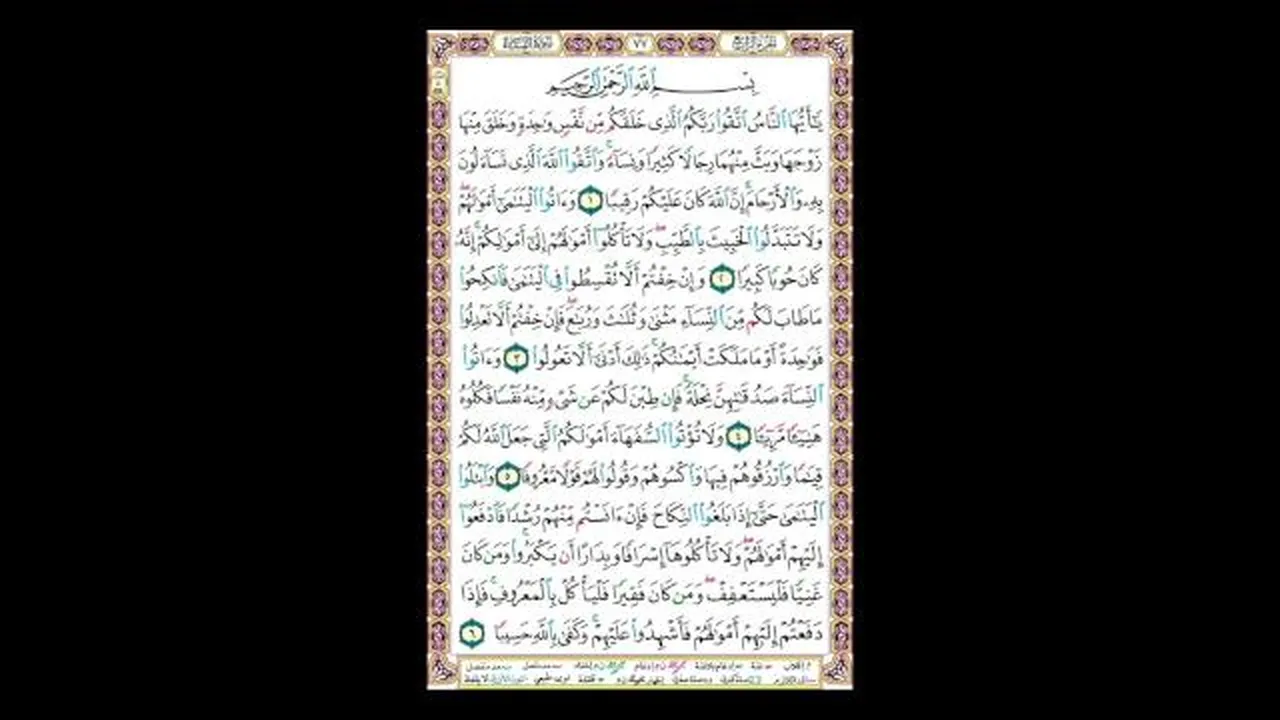 سورة النساء ٧٧ الجزء الرابع
بِسْمِ ٱللَّهِ ٱلرَّحْمَٰنِ ٱلرَّحِيمِ
يَٰٓأَيُّهَا ٱلنَّاسُ ٱتَّقُوا۟ رَبَّكُمُ ٱلَّذِى خَلَقَكُم مِّن نَّفْسٍ وَٰحِدَةٍ وَخَلَقَ مِنْهَا
زَوْجَهَا وَبَثَّ مِنْهُمَا رِجَالًا كَثِيرًا وَنِسَآءً ۚ وَٱتَّقُوا۟ ٱللَّهَ ٱلَّذِى تَسَآءَلُونَ
بِهِۦ وَٱلْأَرْحَامَ ۚ إِنَّ ٱللَّهَ كَانَ عَلَيْكُمْ رَقِيبًا ١ وَءَاتُوا۟ ٱلْيَتَٰمَىٰٓ أَمْوَٰلَهُمْ ۖ
وَلَا تَتَبَدَّلُوا۟ ٱلْخَبِيثَ بِٱلطَّيِّبِ ۖ وَلَا تَأْكُلُوٓا۟ أَمْوَٰلَهُمْ إِلَىٰٓ أَمْوَٰلِكُمْ ۚ إِنَّهُۥ
كَانَ حُوبًا كَبِيرًا ٢ وَإِنْ خِفْتُمْ أَلَّا تُقْسِطُوا۟ فِى ٱلْيَتَٰمَىٰ فَٱنكِحُوا۟
مَا طَابَ لَكُم مِّنَ ٱلنِّسَآءِ مَثْنَىٰ وَثُلَٰثَ وَرُبَٰعَ ۖ فَإِنْ خِفْتُمْ أَلَّا تَعْدِلُوا۟
فَوَٰحِدَةً أَوْ مَا مَلَكَتْ أَيْمَٰنُكُمْ ۚ ذَٰلِكَ أَدْنَىٰٓ أَلَّا تَعُولُوا۟ ٣ وَءَاتُوا۟
ٱلنِّسَآءَ صَدُقَٰتِهِنَّ نِحْلَةً ۚ فَإِن طِبْنَ لَكُمْ عَن شَىْءٍ مِّنْهُ نَفْسًا فَكُلُوهُ
هَنِيٓـًٔا مَّرِيٓـًٔا ٤ وَلَا تُؤْتُوا۟ ٱلسُّفَهَآءَ أَمْوَٰلَكُمُ ٱلَّتِى جَعَلَ ٱللَّهُ لَكُمْ
قِيَٰمًا وَٱرْزُقُوهُمْ فِيهَا وَٱكْسُوهُمْ وَقُولُوا۟ لَهُمْ قَوْلًا مَّعْرُوفًا ٥ وَٱبْتَلُوا۟
ٱلْيَتَٰمَىٰ حَتَّىٰٓ إِذَا بَلَغُوا۟ ٱلنِّكَاحَ فَإِنْ ءَانَسْتُم مِّنْهُمْ رُشْدًا فَٱدْفَعُوٓا۟
إِلَيْهِمْ أَمْوَٰلَهُمْ ۖ وَلَا تَأْكُلُوهَآ إِسْرَافًا وَبِدَارًا أَن يَكْبَرُوا۟ ۚ وَمَن كَانَ
غَنِيًّا فَلْيَسْتَعْفِفْ ۖ وَمَن كَانَ فَقِيرًا فَلْيَأْكُلْ بِٱلْمَعْرُوفِ ۚ فَإِذَا
دَفَعْتُمْ إِلَيْهِمْ أَمْوَٰلَهُمْ فَأَشْهِدُوا۟ عَلَيْهِمْ ۚ وَكَفَىٰ بِٱللَّهِ حَسِيبًا ٦